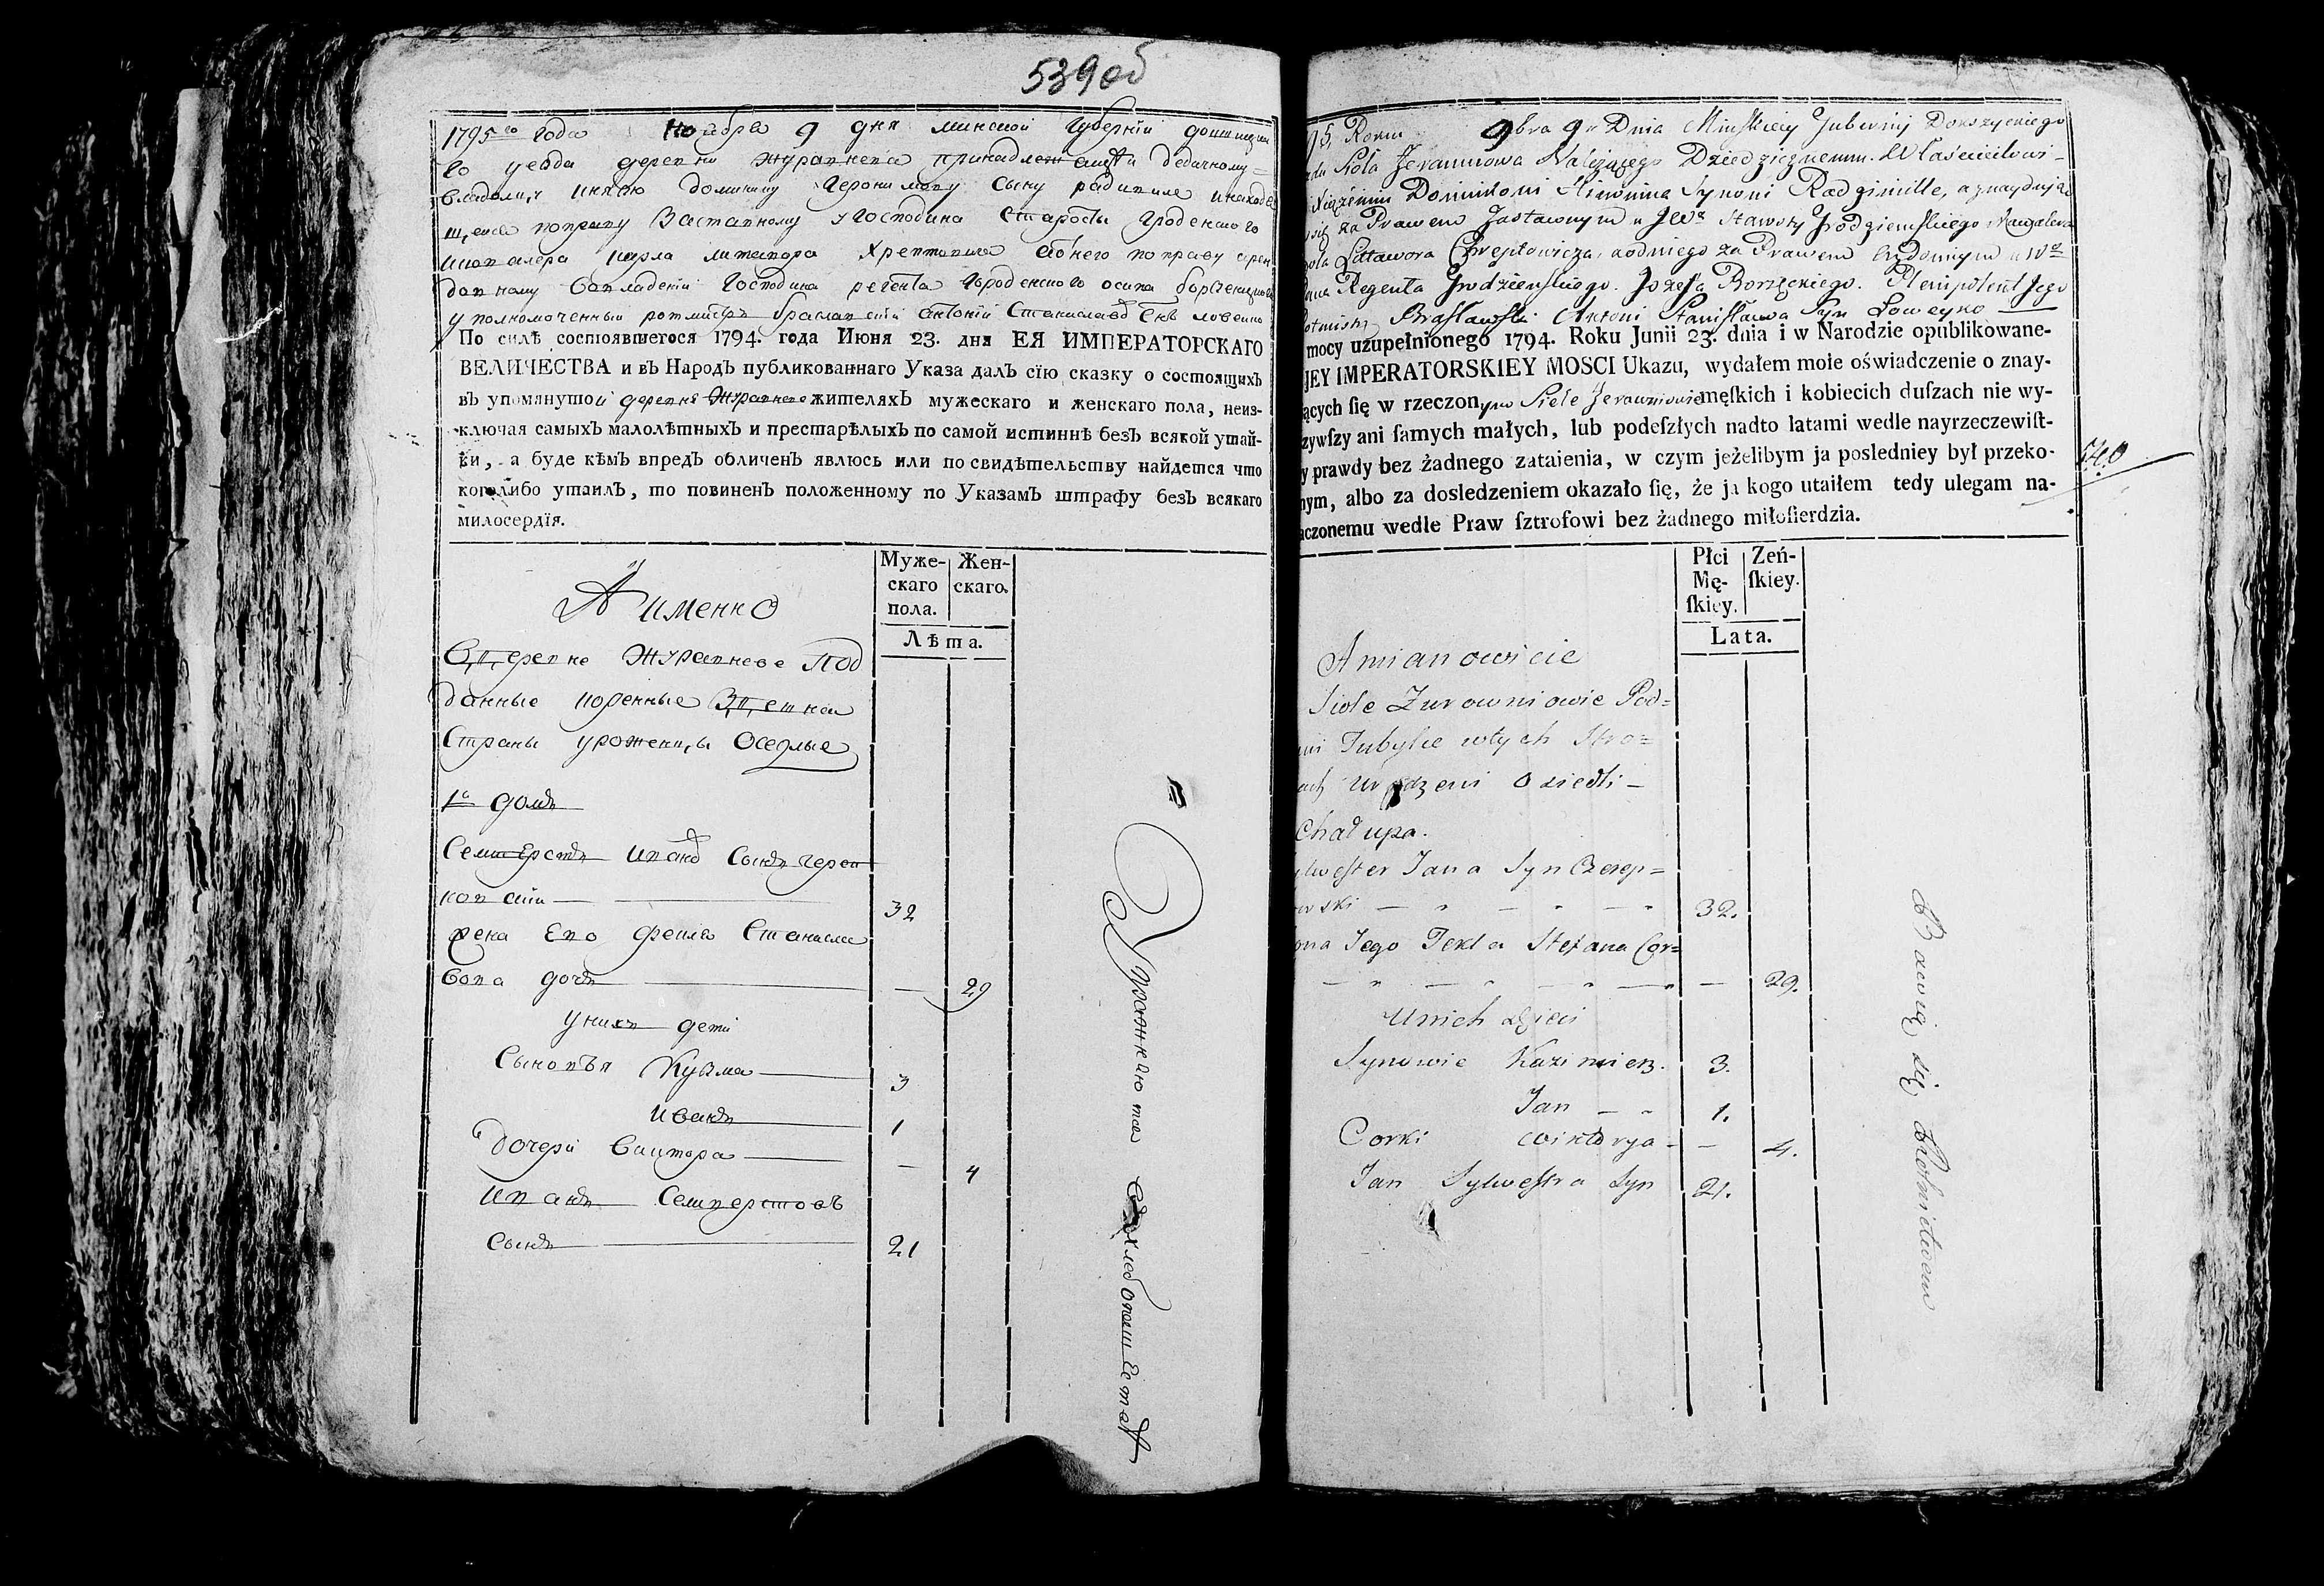 539 об
1795 го года Ноября 9 дня минской губернии
го уезда деревни Журавнева принадлежащей дедичному
владельцу князю доминику Иерониму сыну радивиле инаход
щейся поправу Заставному у Господина Старосты Гроденского
кавалера карла литавора Хрептовича аотнего поправу арен
довному вовладении Господина регента Городенского осипа
уполномоченный ротмистр браславский Антоний Станиславов Снъ ловейко
По силѣ состоявшегося 1794. года Июня 23. дня ЕЯ ИМПЕРАТОРСКАГО
ВЕЛИЧЕСТВА и въ Народъ публикованнаго Указа далъ сїю сказку о состоящихъ
въ упомянутой деревне Журавневе жителяхъ мужескаго и женскаго пола, неиз-
ключая самыхъ малолѣтныхъ и престарѣлыхъ по самой истиннѣ безъ всякой утай-
ки, а буде кѣмъ впредъ обличенъ явлюсь или по свидѣтельству найдется что
коголибо утаилъ, то повиненъ положенному по Указамъ штрафу безъ всякаго
милосердїя.
Муже- Жен-
скаго скаго.
пола.
Лѣта.
А имянно
Вдеревне Журавневе Под
данные коренные Вздешней
Страны уроженцы Оседлые
1й домъ
Селиверстъ Ивановъ Сынъ череп
ковский 32
жена Его фекла Станисла
вова дочь — 29
уних дети
Сыновья Кузма 3
Иванъ 1
дочери Виктора — 4
Иванъ Селиверстовъ
Сынъ 21
95 Roku 9bra 9 Dnia Minskiey Gubernij Dokszyckiego
Sioła Żerawniowa Należącego Dziedzicznemu Właścicielowi
Xiążęciu Dominikowi Hieronima Synowi Radziwille, a znayduiące
się za Prawem Zastawnym u JWo Starosty Grodzieńskiego Kawalera
Karola Littawora Chreptowicza, aodniego za Prawem Arędownym u Wo
Pana Regenta Grodzieńskiego Jozefa Plenipotent Jego
Rotmistrz Brasławski Antoni Stanisława Syn Łoweyko
mocy uzupełnionego 1794. Roku Junii 23. dnia i w Narodzie opublikowane-
JEY IMPERATORSKIEY MOSCI Ukazu, wydałem moie oświadczenie o znay-
ących ſię w rzeczonym Siele Żerawniowie męſkich i kobiecich duſzach nie wy-
zywſzy ani ſamych małych, lub podeſzłych nadto latami wedle nayrzeczewiſt-
y prawdy bez żadnego zataienia, w czym jeżelibym ja posledniey był przeko-
nym, albo za dosledzeniem okazało ſię, że ja kogo utaiłem tedy ulegam na-
aczonemu wedle Praw ſztrofowi bez żadnego miłoſierdzia.
540
Płci Zeń-
Mę- ſkiey.
ſkiey.
Lata.
Amianowicie
Siole Żurowniowie Pod=
Tubylce wtych Stro=
ach urodzeni Osiedli —
Chałupa.
ylwester Jana Syn Czerep=
wski 32.
ona Jego Tekla Stefana Cor=
— 29.
Unich dzieci
Synowie Kazimierz 3.
Jan 1.
Corki Wiktorya — 4.
Jan Sylwestra Syn 21.
Упражняются Вхлебопашестве
Bawią się Rolnictwem